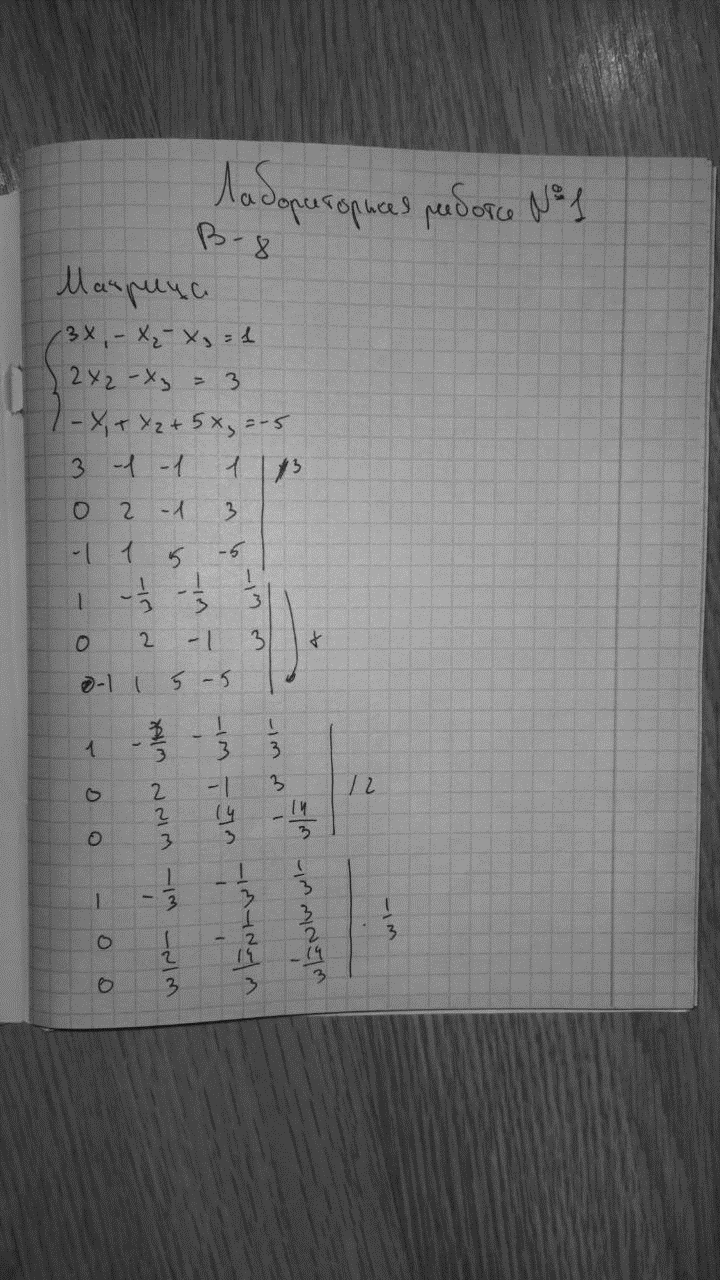 Лабораторная работа №1
В-8
Матрица
3x₁ - x₂ - x₃ = 1
2x₂ - x₃ = 3
-x₁ + x₂ + 5x₃ = -5
3 -1 -1 1 | /3
0 2 -1 3
-1 1 5 -5
1 -1/3 -1/3 1/3
0 2 -1 3 +
-1 1 5 -5
1 -1/3 -1/3 1/3
0 2 -1 3 | /2
0 2/3 14/3 -14/3
1 -1/3 -1/3 1/3
0 1 -1/2 3/2 | · 1/3
0 2/3 14/3 -14/3